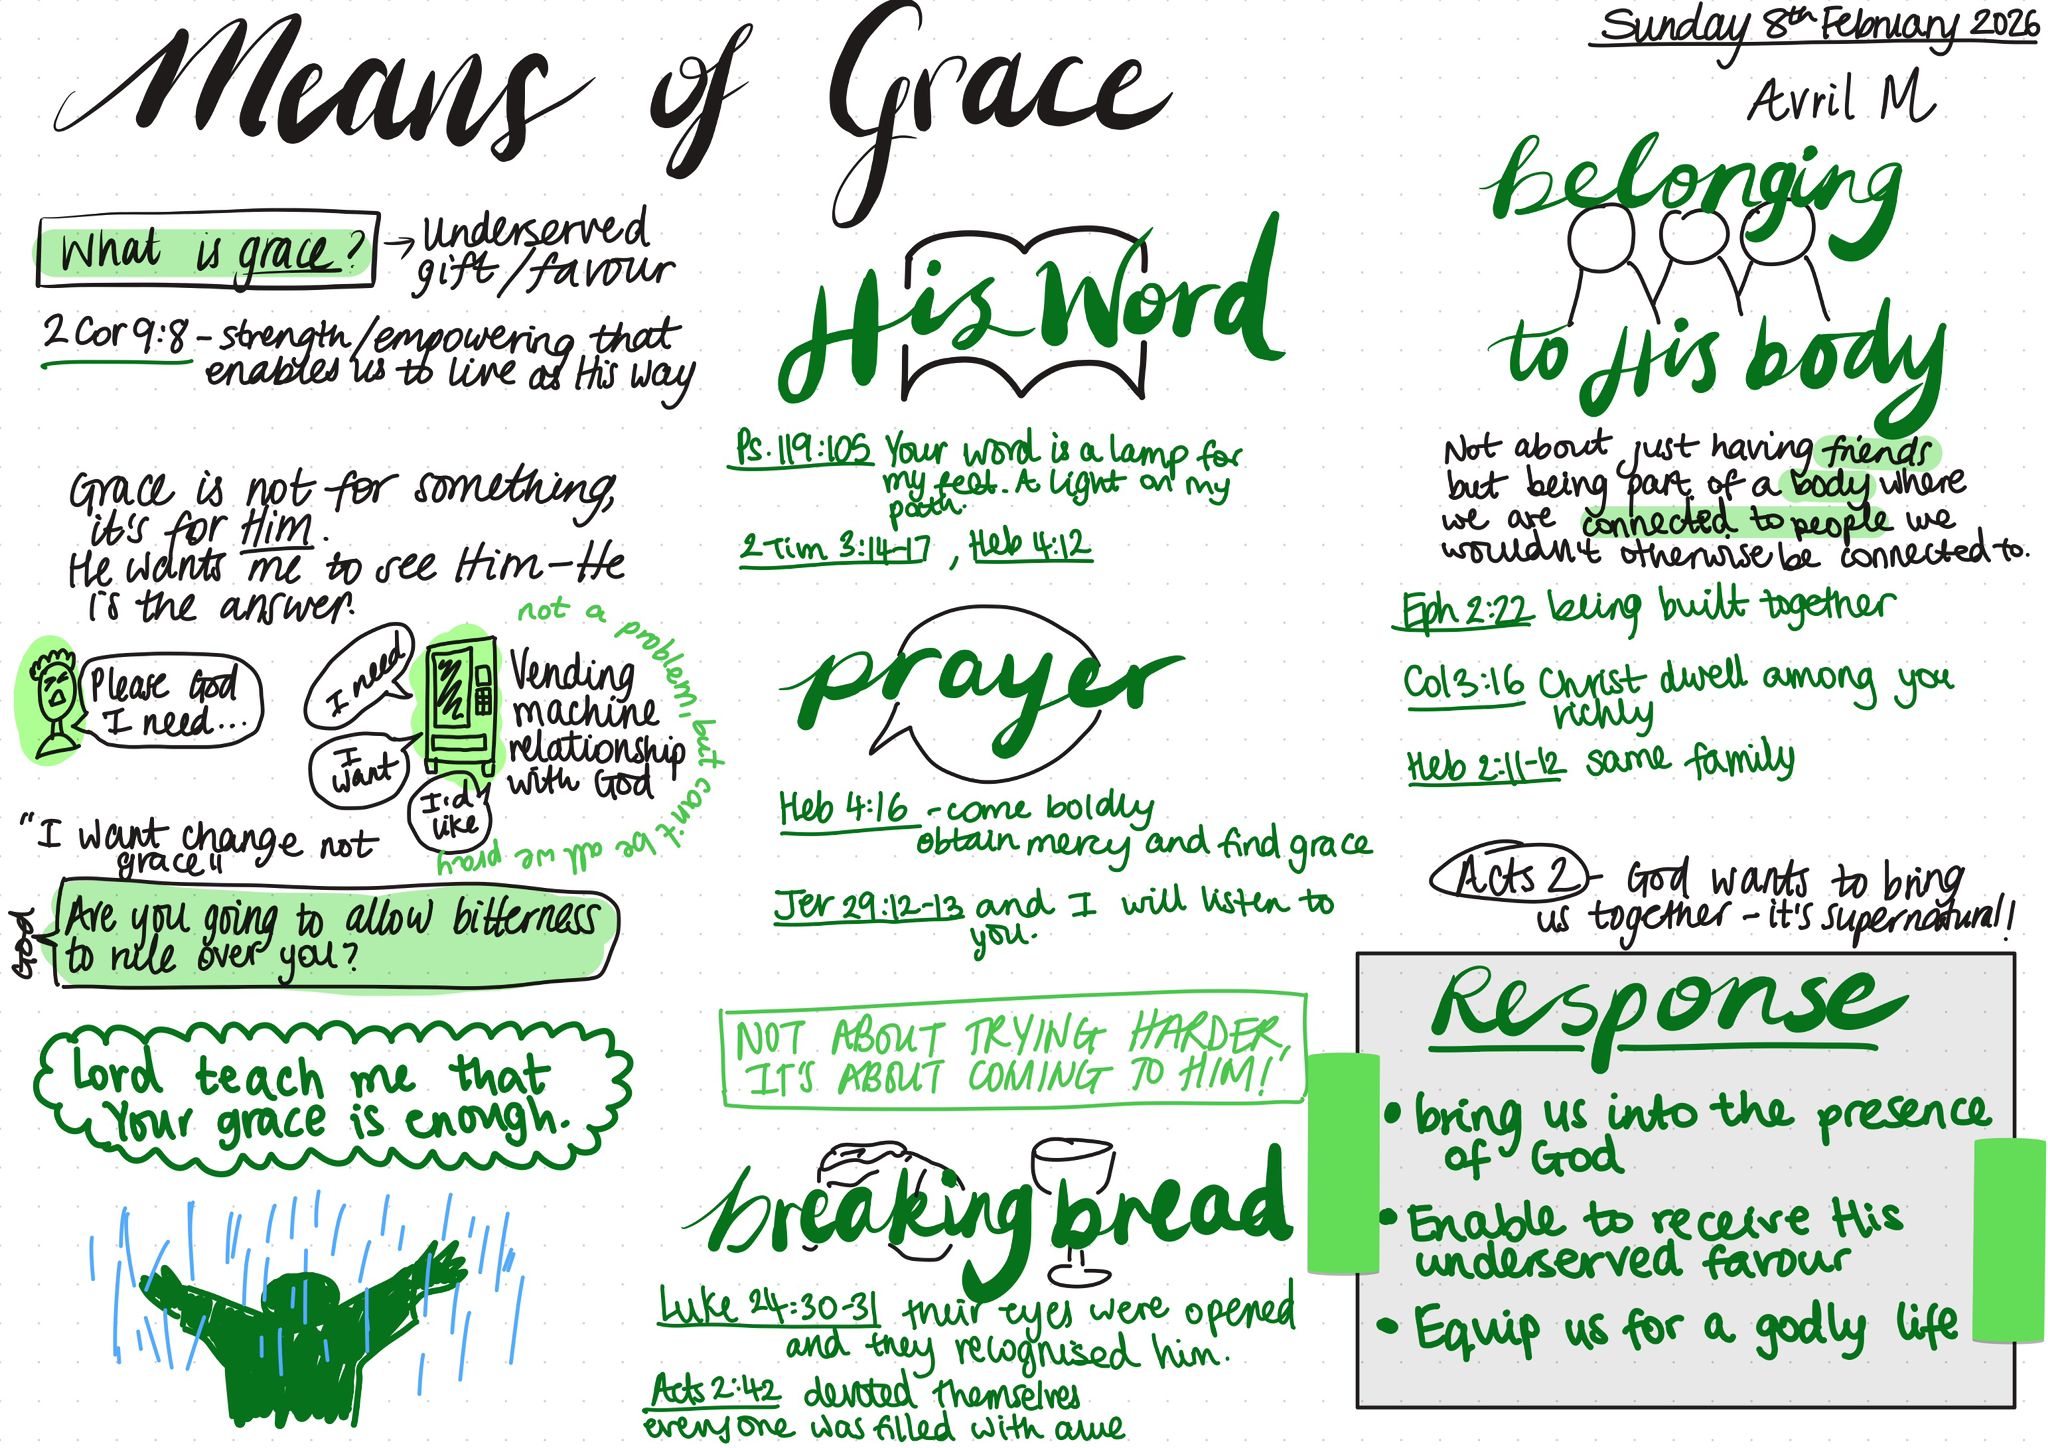 Means of Grace
Sunday 8th February 2026
Avril M
What is grace?
→ Underserved
gift/favour
2 Cor 9:8 - strength/empowering that
enables us to live as His way
Grace is not for something,
it's for Him.
He wants me to see Him - He
is the answer.
Please God
I need...
I need
I
want
I'd
like
Vending
machine
relationship
with God
not a problem, but can't be all we pray
"I want change not
grace"
God
Are you going to allow bitterness
to rule over you?
Lord teach me that
Your grace is enough.
His Word
Ps. 119:105 Your word is a lamp for
my feet. A light on my
path.
2 Tim 3:14-17, Heb 4:12
prayer
Heb 4:16 - come boldly
obtain mercy and find grace
Jer 29:12-13 and I will listen to
you.
NOT ABOUT TRYING HARDER,
IT'S ABOUT COMING TO HIM!
breaking bread
Luke 24:30-31 their eyes were opened
and they recognised him.
Acts 2:42 devoted themselves
everyone was filled with awe
belonging
to His body
Not about just having friends
but being part of a body where
we are connected to people we
wouldn't otherwise be connected to.
Eph 2:22 being built together
Col 3:16 Christ dwell among you
richly
Heb 2:11-12 same family
Acts 2 - God wants to bring
us together - it's supernatural!
Response
• bring us into the presence
of God
• Enable to receive His
underserved favour
• Equip us for a godly life